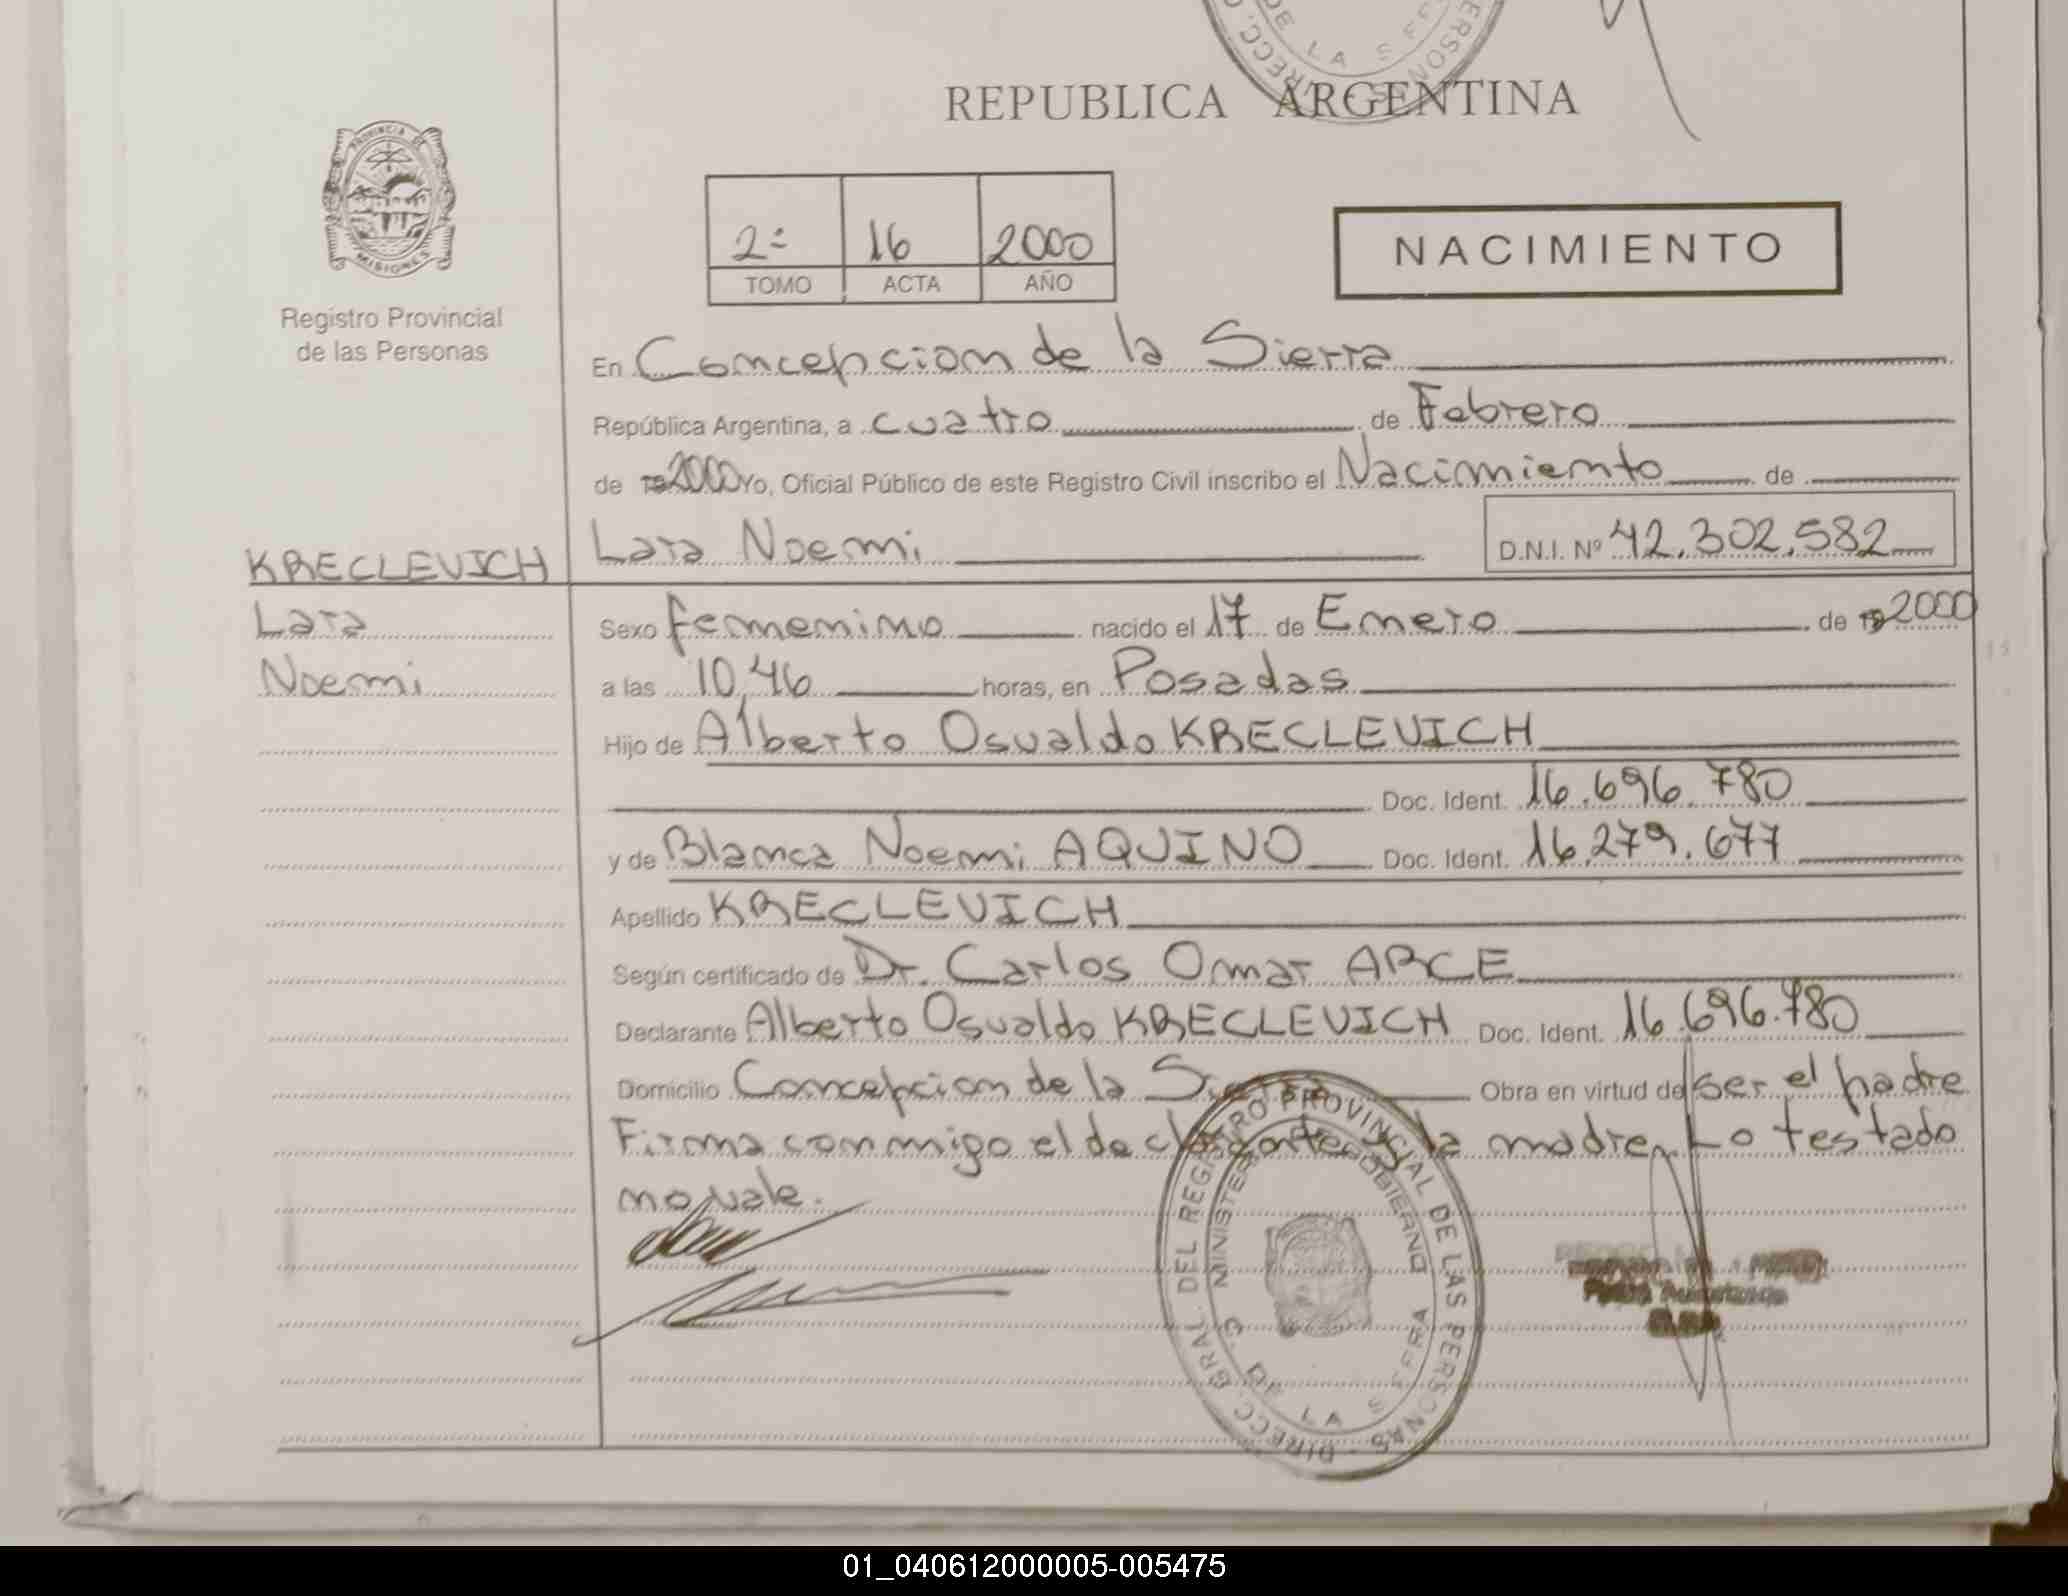 DIRECC. PERSONAS
DE LA S
REPUBLICA ARGENTINA
PROVINCIA DE
MISIONES
2º 16 2000
TOMO ACTA AÑO
NACIMIENTO
Registro Provincial
de las Personas
En Concepcion de la Sierra
República Argentina, a cuatro de Febrero
de 19 2000 Yo, Oficial Público de este Registro Civil inscribo el Nacimiento de
KRECLEVICH
Lara Noemi D.N.I. Nº 42.302.582
Lara
Noemi
Sexo femenino nacido el 17 de Enero de 19 2000
a las 10,46 horas, en Posadas
Hijo de Alberto Osvaldo KRECLEVICH
Doc. Ident. 16.696.780
y de Blanca Noemi AQUINO Doc. Ident. 16.279.677
Apellido KRECLEVICH
Según certificado de Dr. Carlos Omar ARCE
Declarante Alberto Osvaldo KRECLEVICH Doc. Ident. 16.696.780
Domicilio Concepcion de la Sierra Obra en virtud de ser el padre
Firma conmigo el declarante y la madre. Lo testado
no vale.
DIRECC. GRAL. DEL REGISTRO PROVINCIAL DE LAS PERSONAS
MINISTERIO DE GOBIERNO
C. DE LA SIERRA
01_040612000005-005475